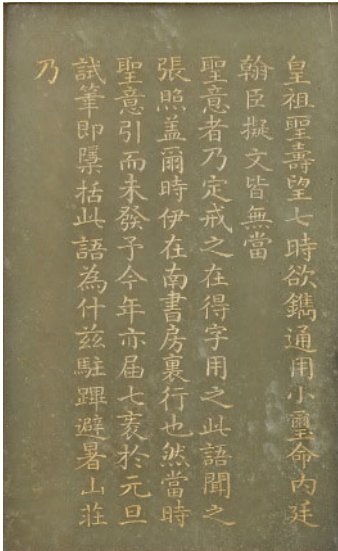 皇祖聖壽望七時欲鐫通用小璽命內廷
翰臣擬文皆無當
聖意者乃定戒之在得字用之此語聞之
張照盖爾時伊在南書房裏行也然當時
聖意引而未發予今年亦届七袠於元旦
試筆即檃括此語為什兹駐蹕避暑山莊
乃